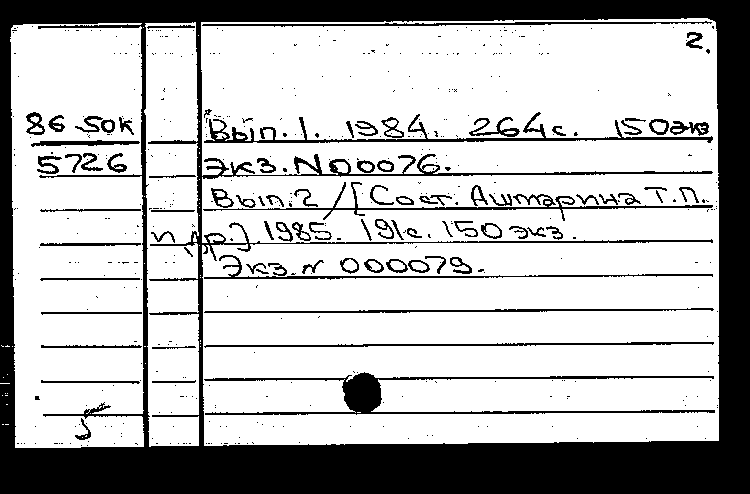 2.
86-50к Вып.1. 1984. 264с. 150экз
5726 экз.N00076.
Вып.2 /[Сост. Аштарина Т.П.
и др.] 1985. 191с. 150 экз.
Экз.N 000079.
5